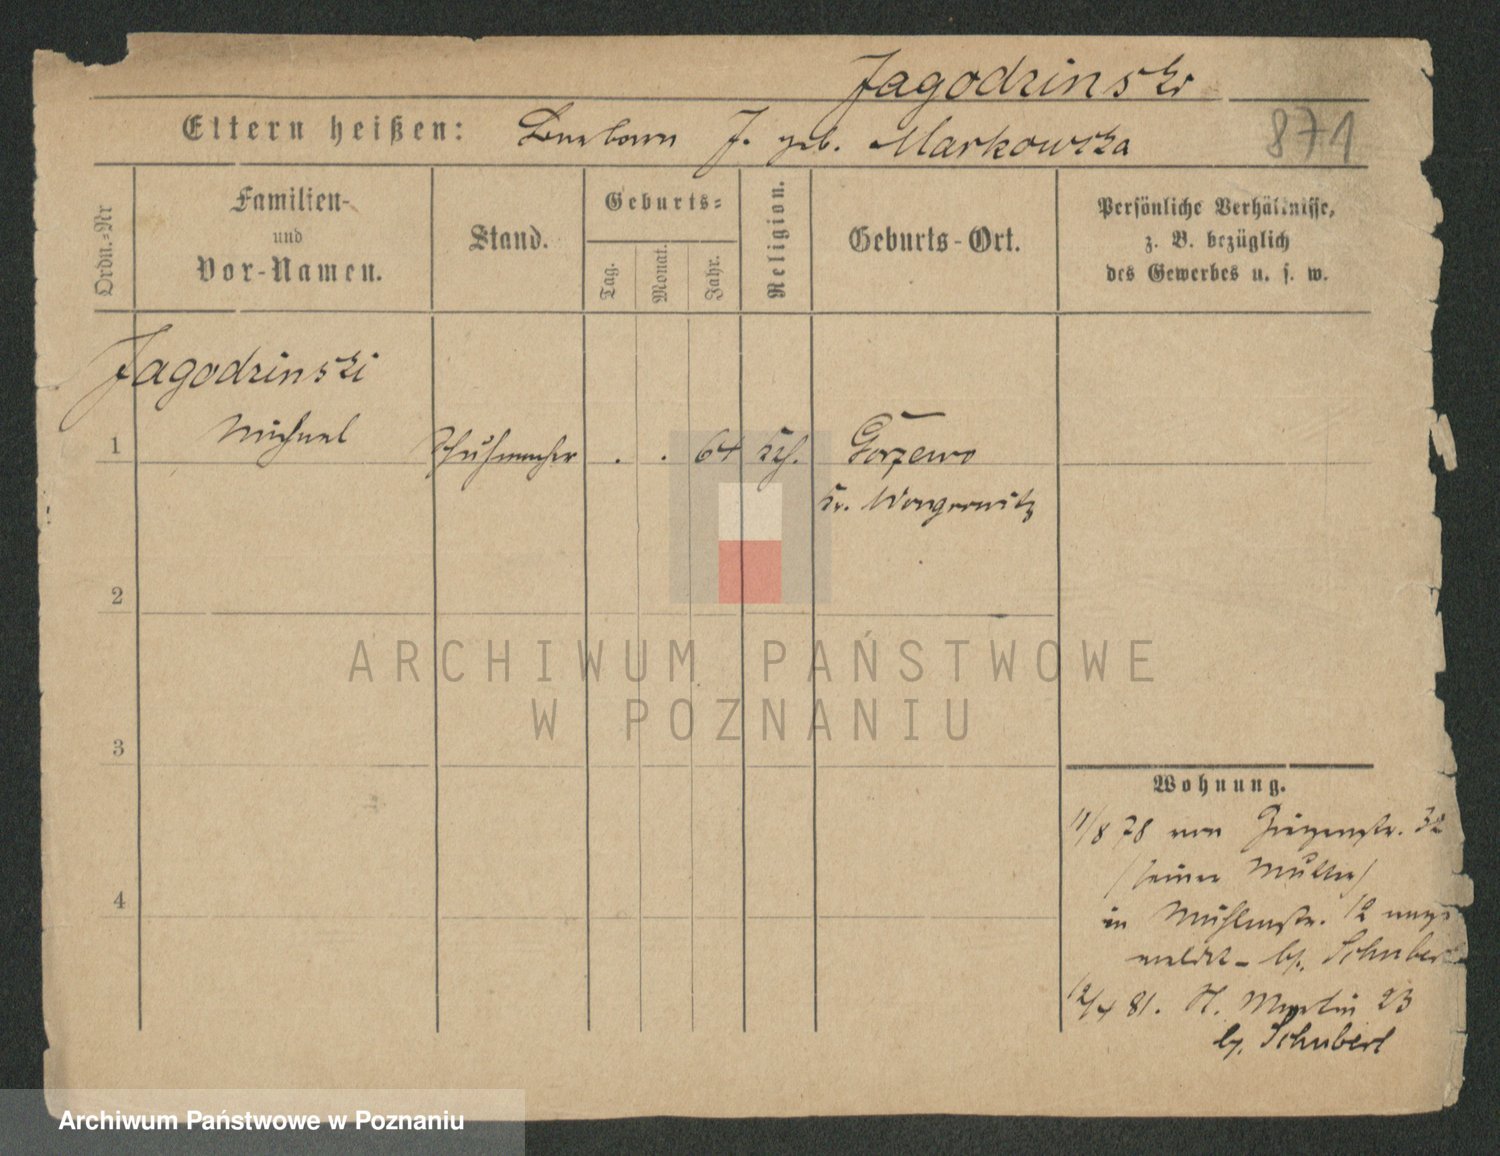 Jagodzinski
Eltern heißen: Barbara J. geb. Markowska
871
Ordn.-Nr
Familien-
und
Vor-Namen.
Stand.
Geburts-
Tag.
Monat.
Jahr.
Religion.
Geburts-Ort.
Persönliche Verhältnisse,
z. B. bezüglich
des Gewerbes u. s. w.
Jagodzinski
1 Michael Schuhmacher . . 64 kth. Gorzewo
Kr. Wongrowitz
2
3
4
Wohnung.
11/8 78 von 32
(seiner Mutter)
in Mühlenstr. 12 ange
meldet - bei Schubert
12/4 81. St. Martin 23
bei Schubert
ARCHIWUM PAŃSTWOWE
W POZNANIU
Archiwum Państwowe w Poznaniu